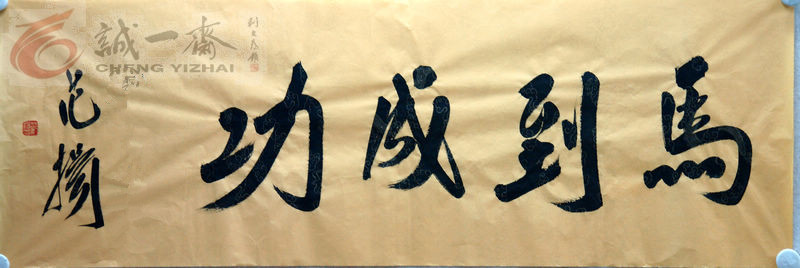 馬到成功
范撝
誠一齋
CHENG YIZHAI